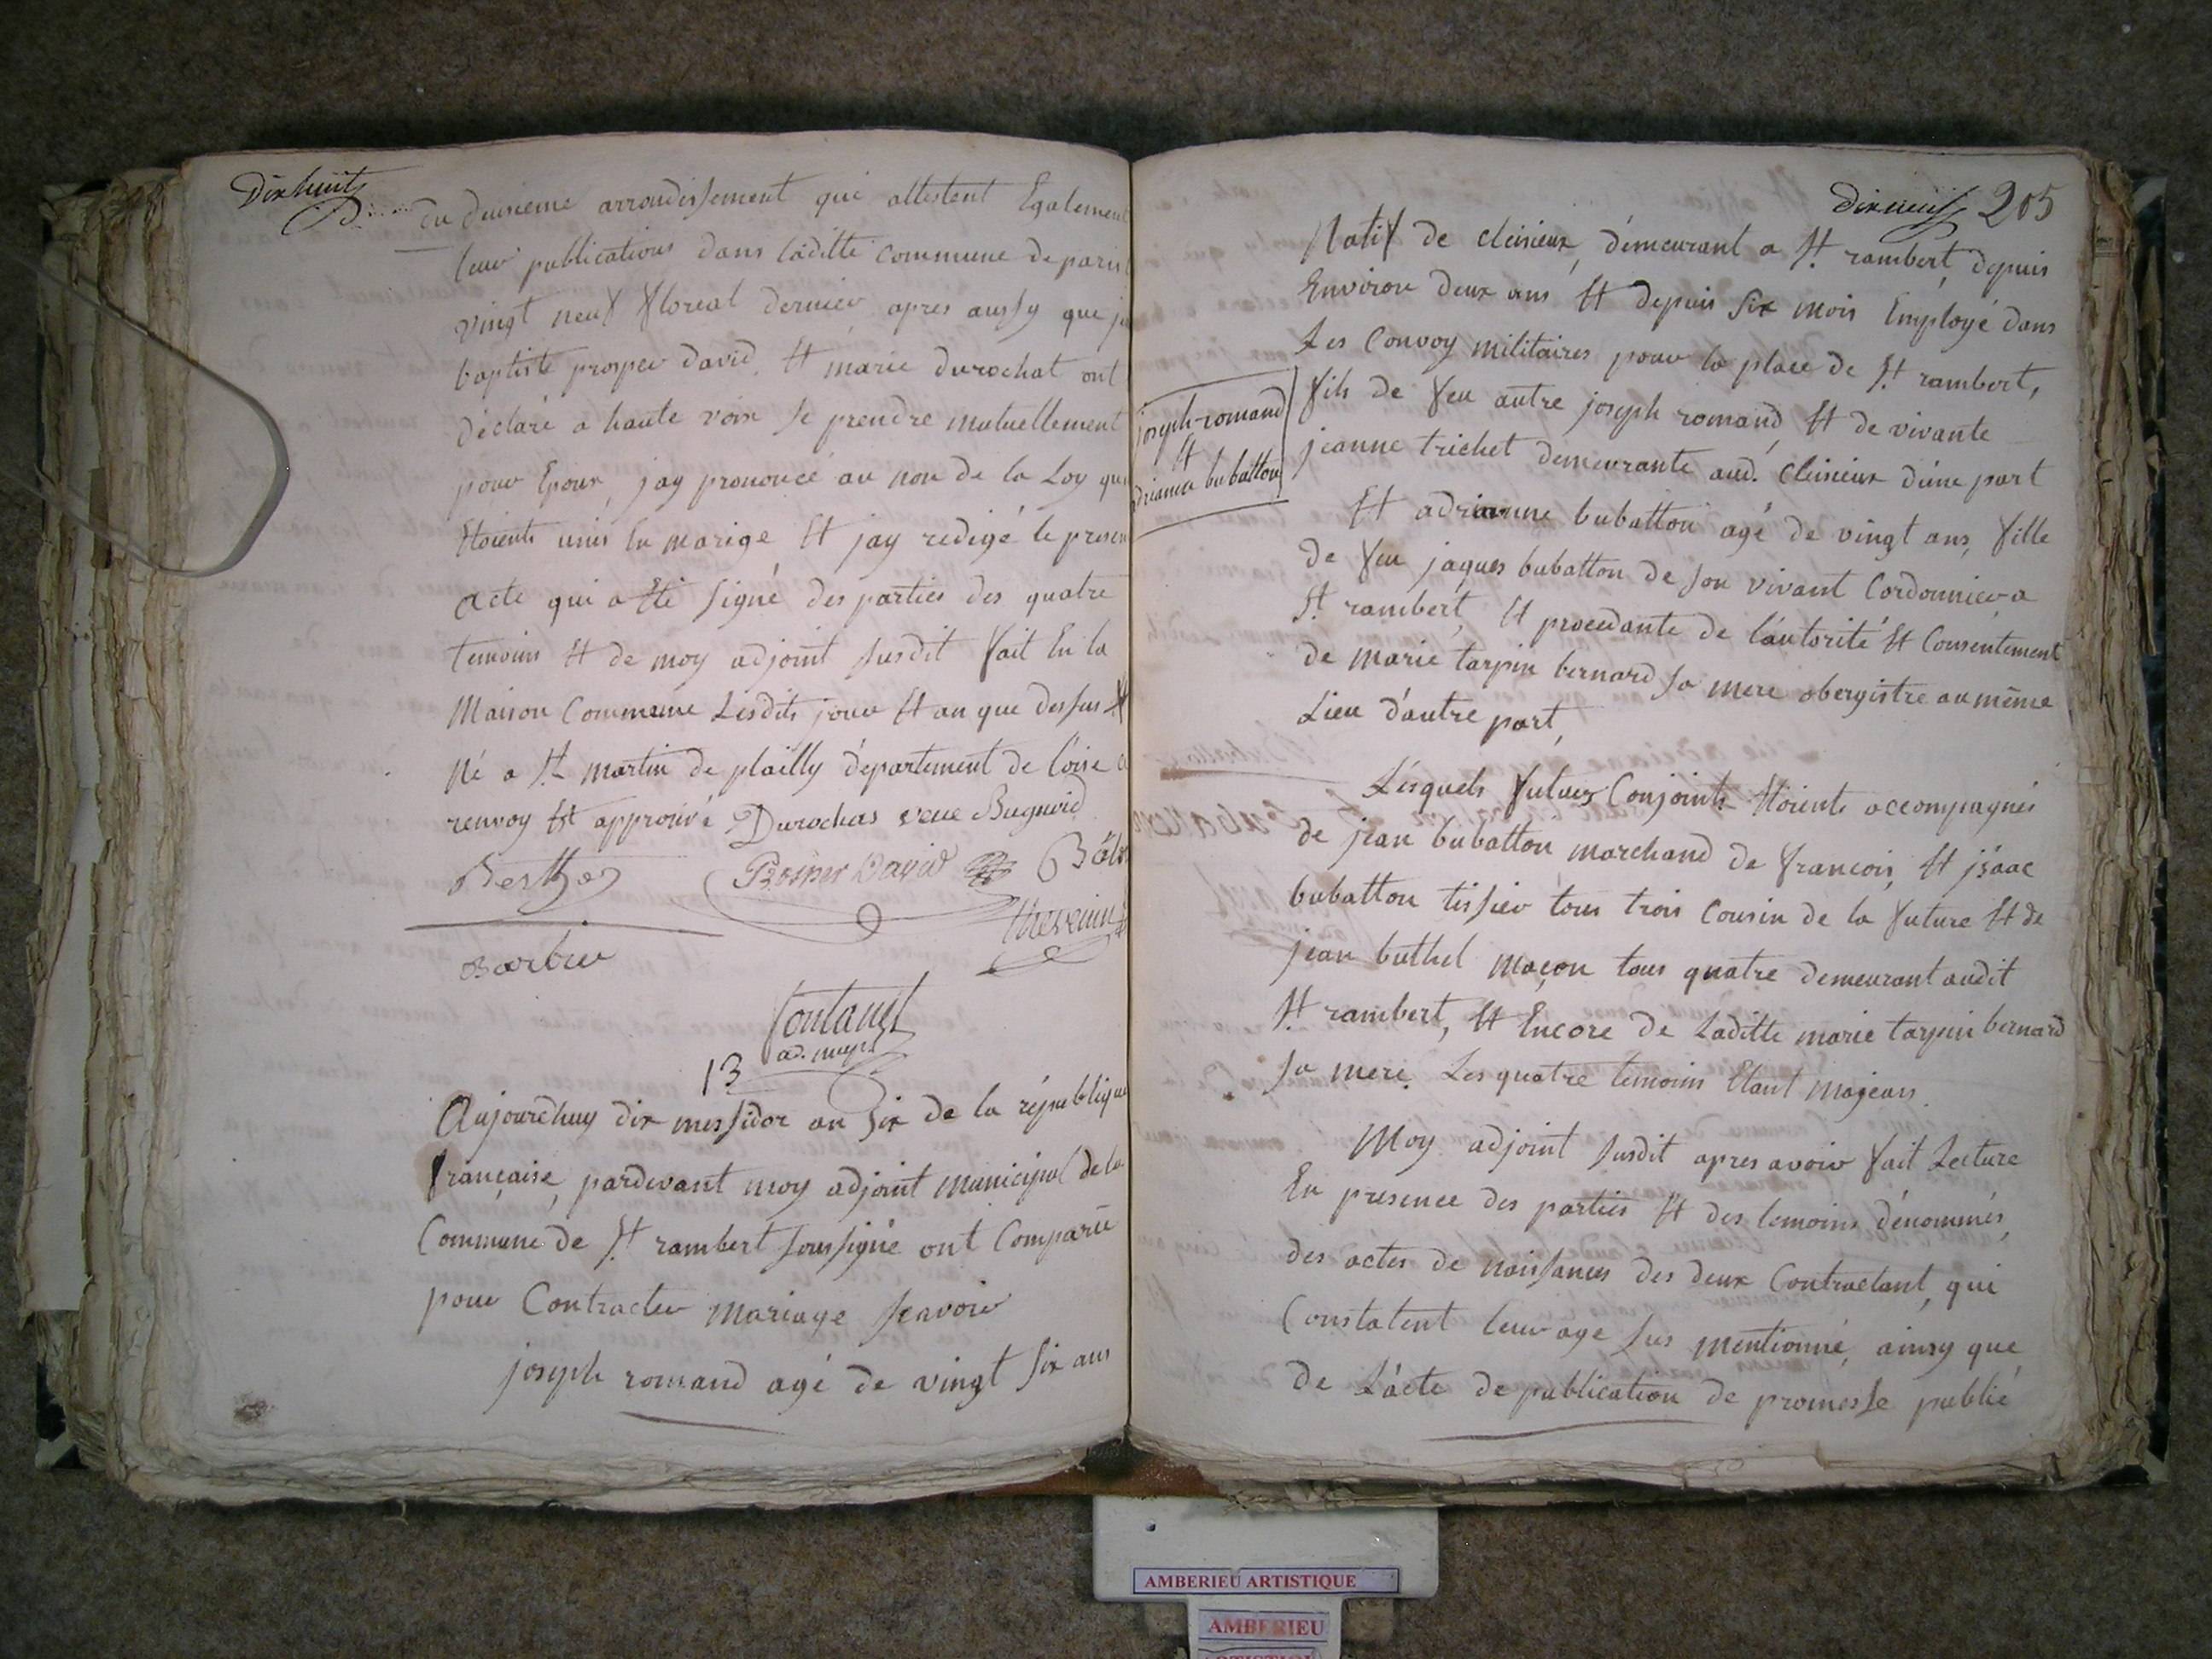 Dixhuit
du duisieme arrondissement qui attestent Egalement
leur publications dans laditte commune de paris
vingt neuf floreal dernier apres aussy que
baptiste prosper david, Et marie durochat ont
déclaré a haute voix se prendre mutuellement
pour Epoux, jay prononcé au non de la Loy
Etoients unis En marige Et jay redigé le
acte qui a Eté signé des parties des quatre
temoins Et de moy adjoint susdit fait En la
Maison Commune Lesdits jour Et an que dessus
Né a St martin de plailly département de l'oise
renvoy Est approuvé Durochas veue Bugnvid
Berthe
Prosper David
Barbier
fontanel
ad. mupl
13
Aujourdhuy dix messidor an Six de la république
française, pardevant moy adjoint municipal de la
Commune de St rambert soussigné ont Comparu
pour Contracter Mariage scavoir
joseph romand agé de vingt six ans
dixneuf 205
Natif de cleisieux, démeurant a St. rambert, depuis
Environ deux ans Et depuis six mois Employé dans
Les Convoy militaires pour la place de St rambert,
fils de feu autre joseph romand, Et de vivante
jeanne trichet demeurante aud. cleisieux d'une part
joseph-romand
Et
drianne bubatton
Et adrianne bubatton agé de vingt ans, fille
de feu jaques bubatton de son vivant Cordonnier a
St. rambert, Et procedante de l'autorité Et Consentement
de marie tarpin bernard sa mere obergistre au même
Lieu d'autre part,
Lésquels futurs Conjoints Etoients accompagnés
de jean bubatton marchand de francois, Et jsaac
bubatton tissier tous trois Cousin de la future Et de
jean buthel maçon tous quatre demeurant audit
St. rambert, Et Encore de Laditte marie tarpin bernard
sa mere. Les quatre temoins Etant majeurs.
Moy adjoint susdit apres avoir fait Lecture
En presence des parties Et des temoins dénommés,
des actes de naissances des deux Contractant, qui
Constatent leur age sus mentionné, ainsy que
de L'acte de publication de promesse publié
AMBERIEU ARTISTIQUE
AMBERIEU
ARTISTIQUE